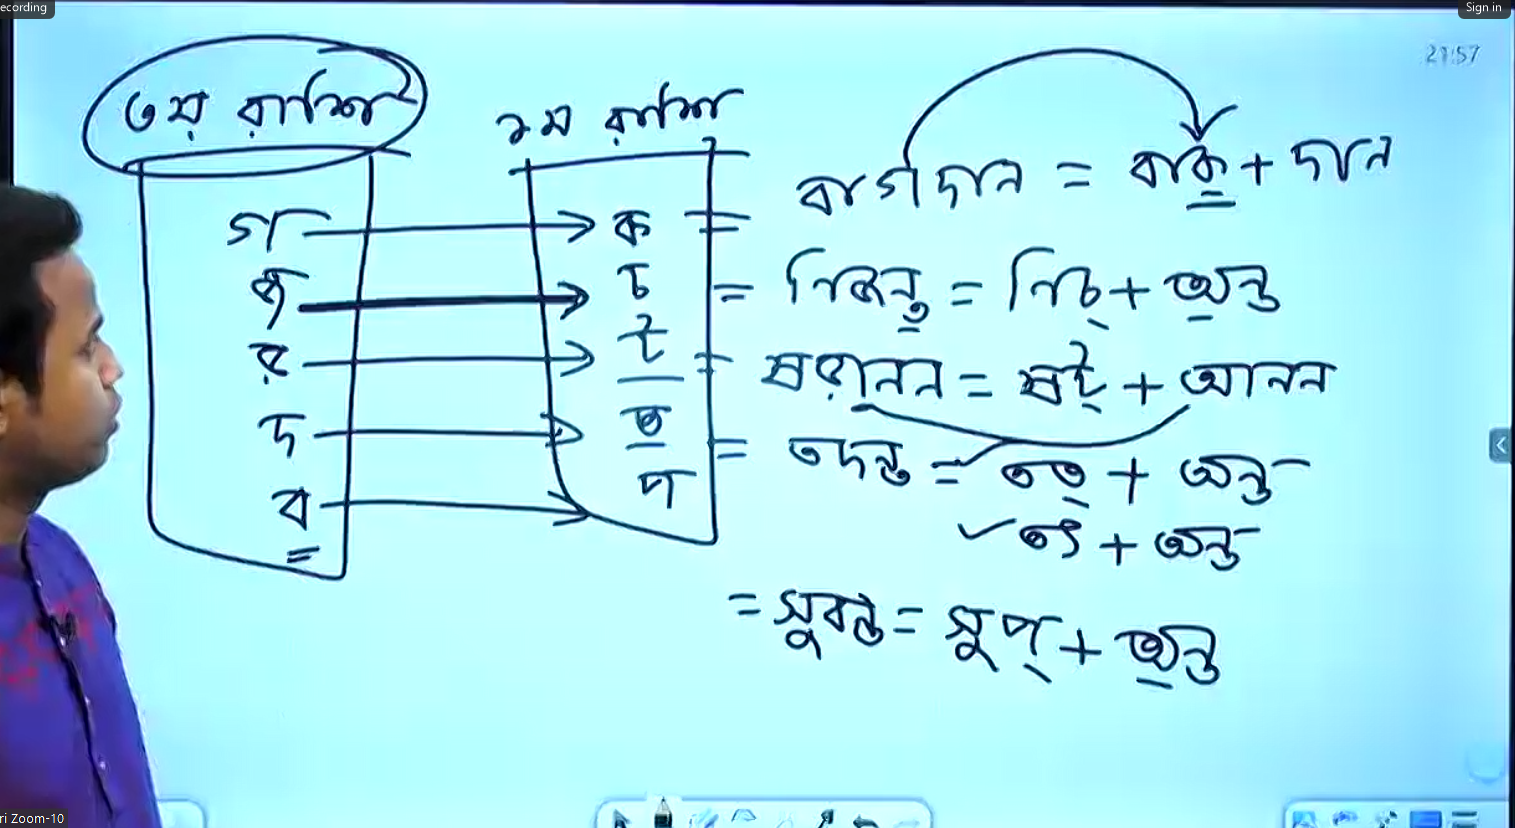 ecording
Sign in
21:57
৩য় রাশি ১ম রাশি
গ ক = বাগদান = বাক্ + দান
জ চ = নিজন্ত = নিচ্ + অন্ত
ড় ট = ষড়ানন = ষট্ + আনন
দ ত = তদন্ত = তত্ + অন্ত
তৎ + অন্ত
ব প
= সুবন্ত = সুপ্ + অন্ত
ri Zoom-10